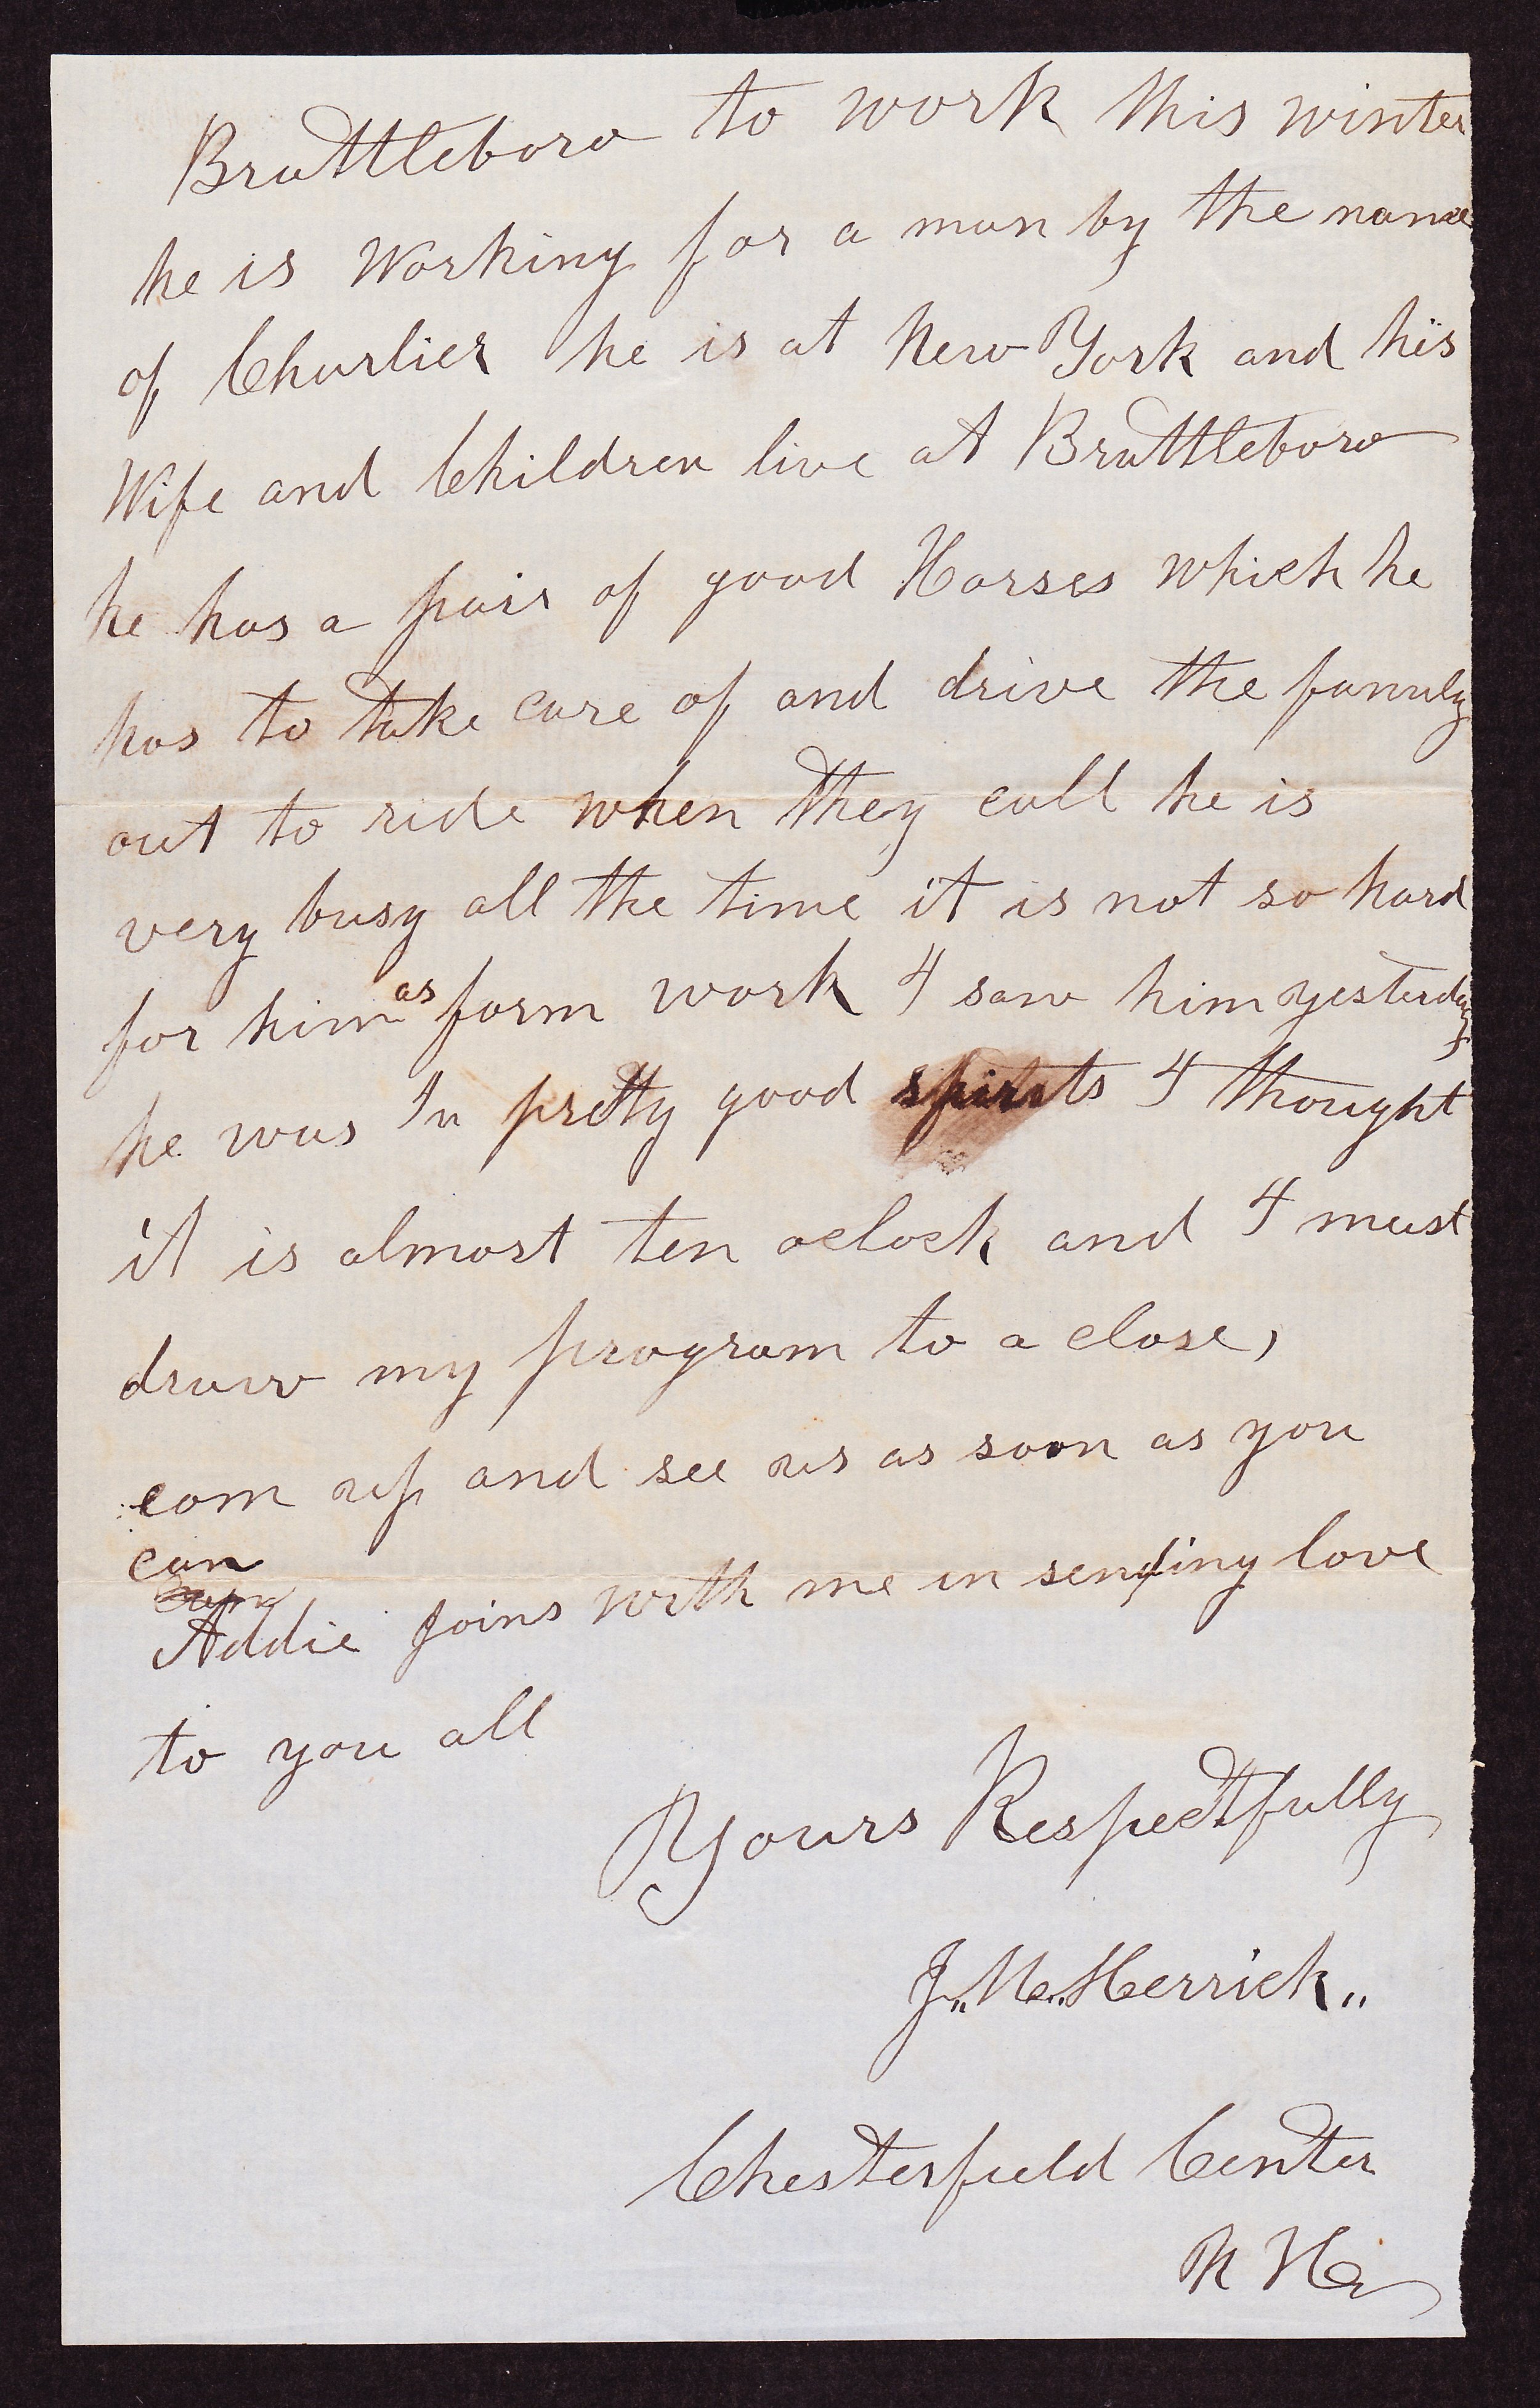 Brattleboro to work this winter
he is Working for a man by the name
of Charlier he is at New York and his
Wife and Children live at Brattleboro
he has a pair of good Horses which he
has to take care of and drive the family
out to ride when they call he is
very busy all the time it is not so hard
for him as farm work I saw him yesterday
he was In pretty good spirits I thought
it is almost ten oclock and I must
draw my program to a close,
com up and see us as soon as you
can
Addie Joins with me in sending love
to you all
Yours Respectfully
J. M. Herrick.
Chesterfield Center
N H